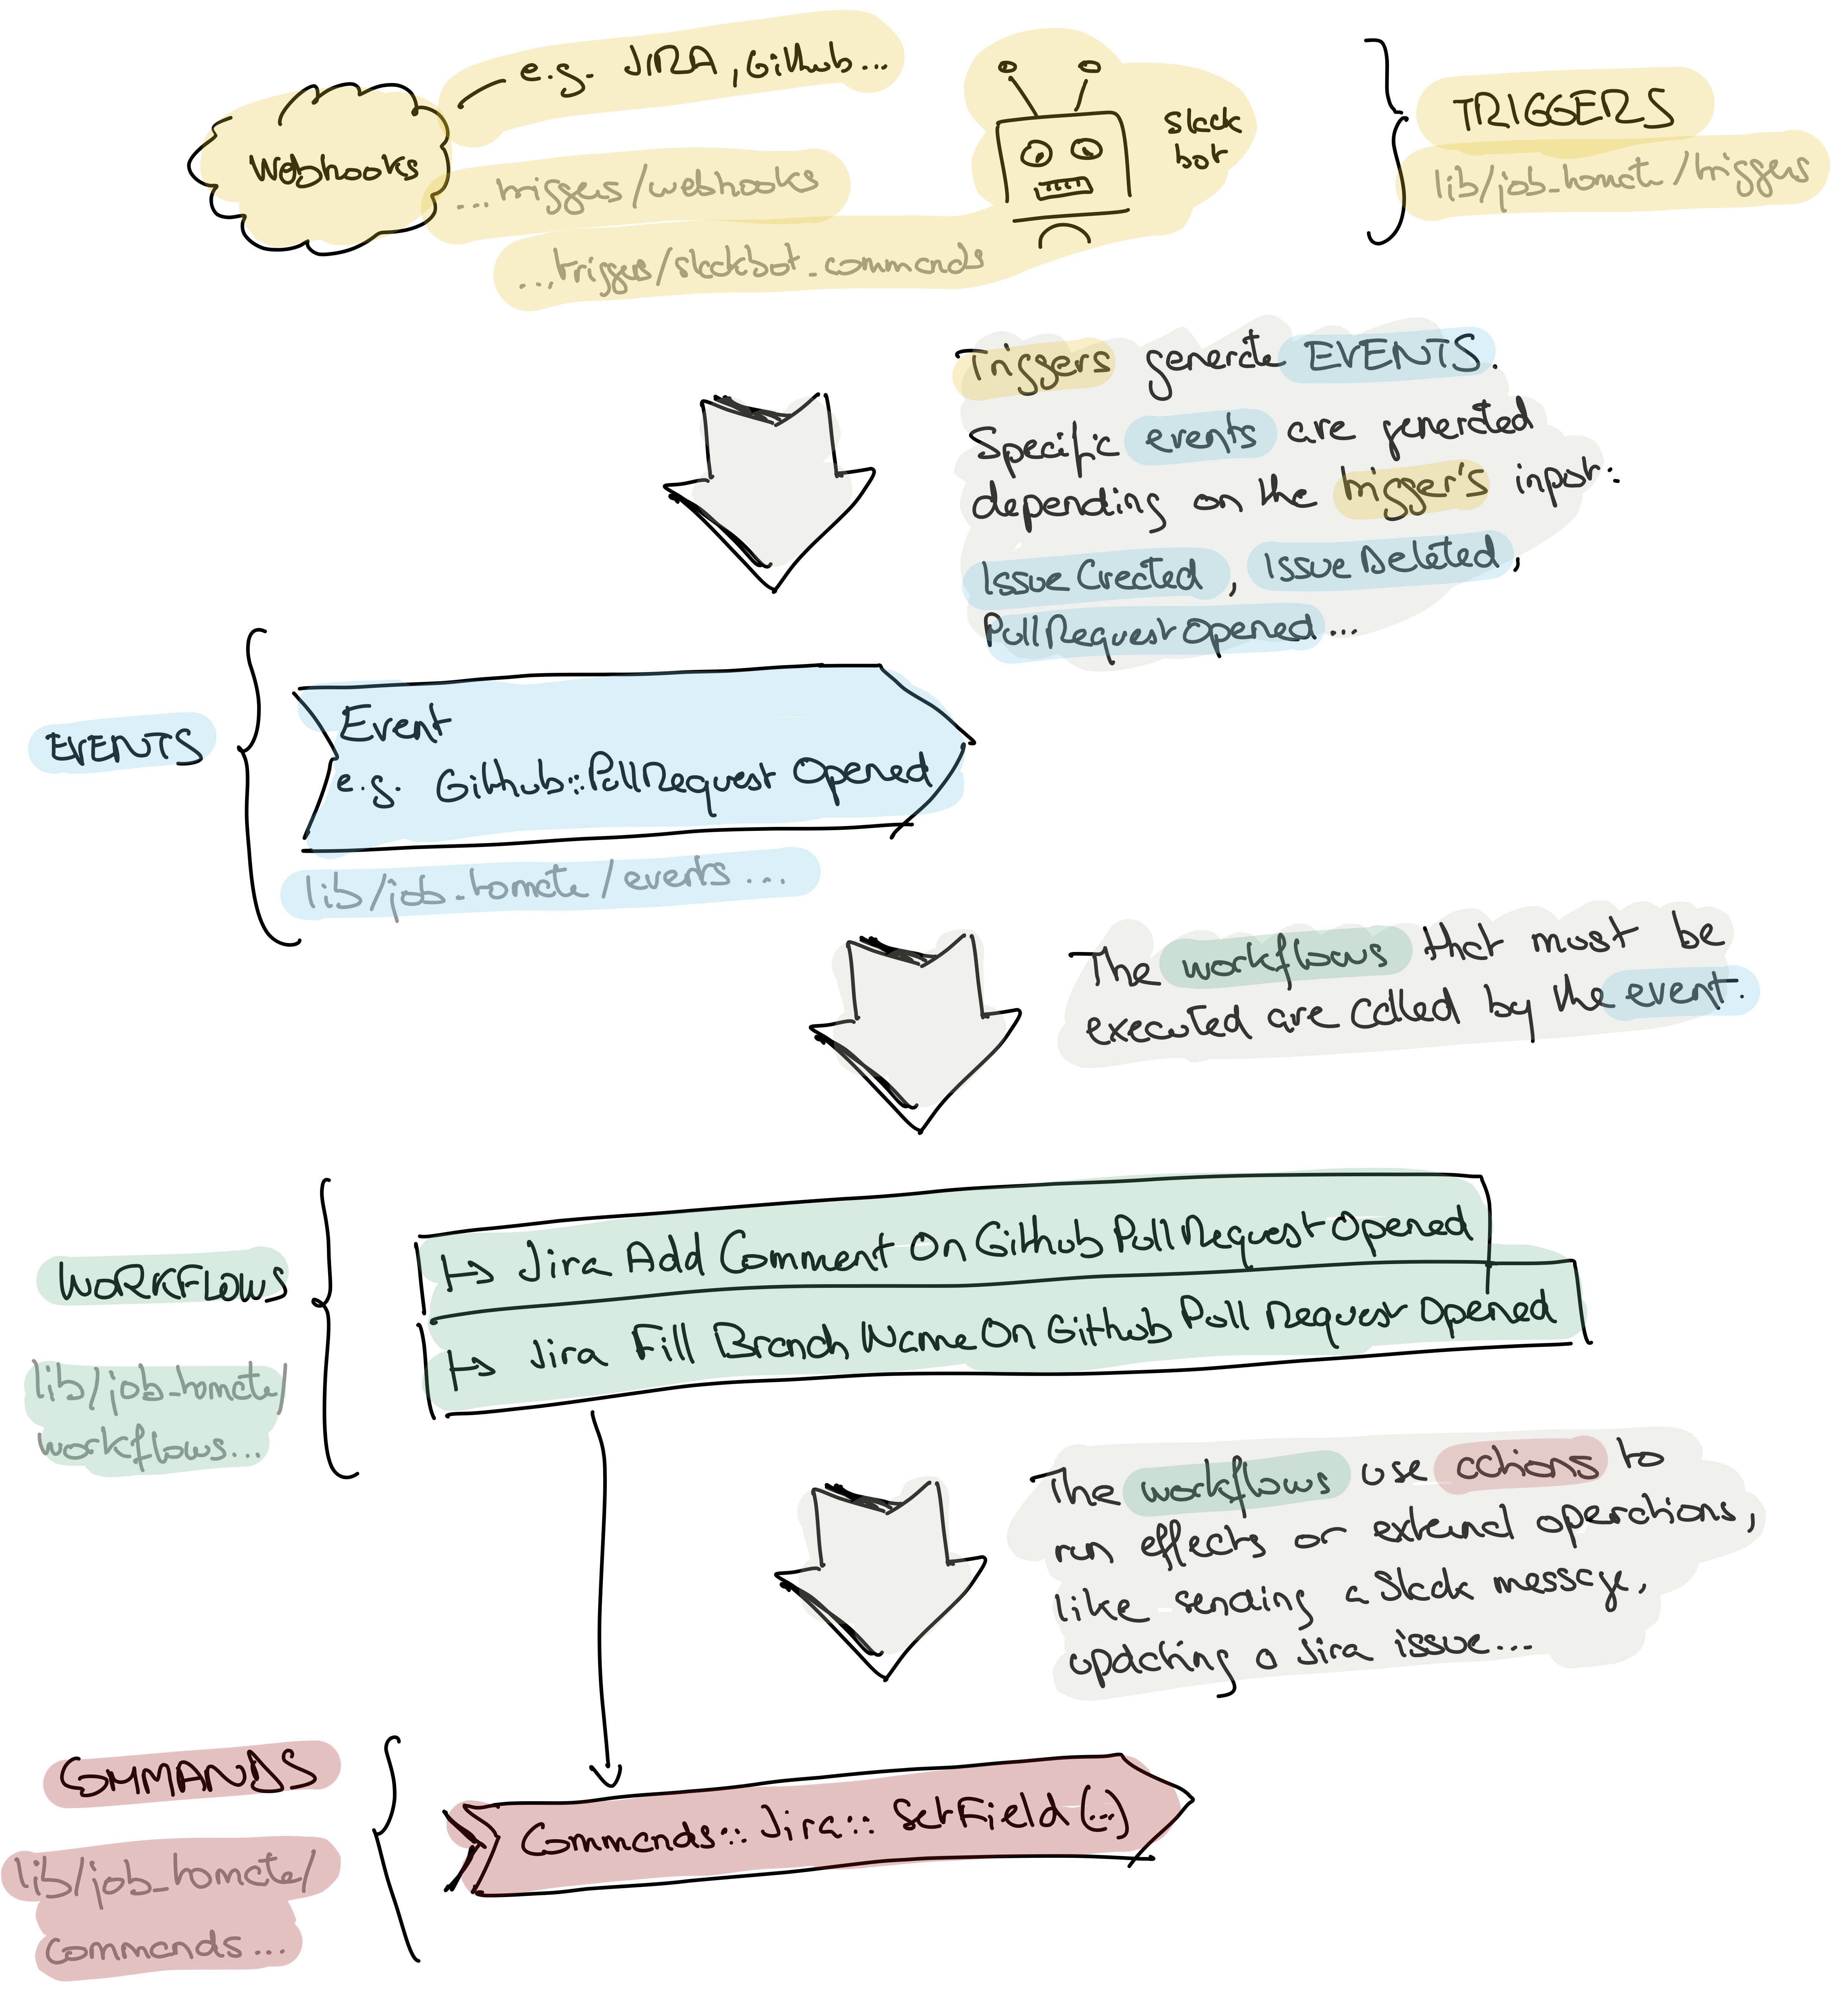 e.g. JIRA, Github...
Webhooks
...triggers/webhooks
...triggers/slackbot_commands
slack
bot
TRIGGERS
lib/job_tomate/triggers
Triggers generate EVENTS.
Specific events are generated
depending on the trigger's input:
Issue Created, Issue Deleted,
PullRequestOpened...
EVENTS
Event
e.g. Github::PullRequest Opened
lib/job_tomate/events...
The workflows that must be
executed are called by the event.
WORKFLOWS
lib/job_tomate/
workflows...
↦ Jira Add Comment On Github PullRequest Opened
↦ Jira Fill Branch Name On Github Pull Request Opened
The workflows use actions to
run effects or external operations,
like sending a Slack message,
updating a Jira issue...
COMMANDS
lib/job_tomate/
commands...
Commands::Jira::SetField(...)